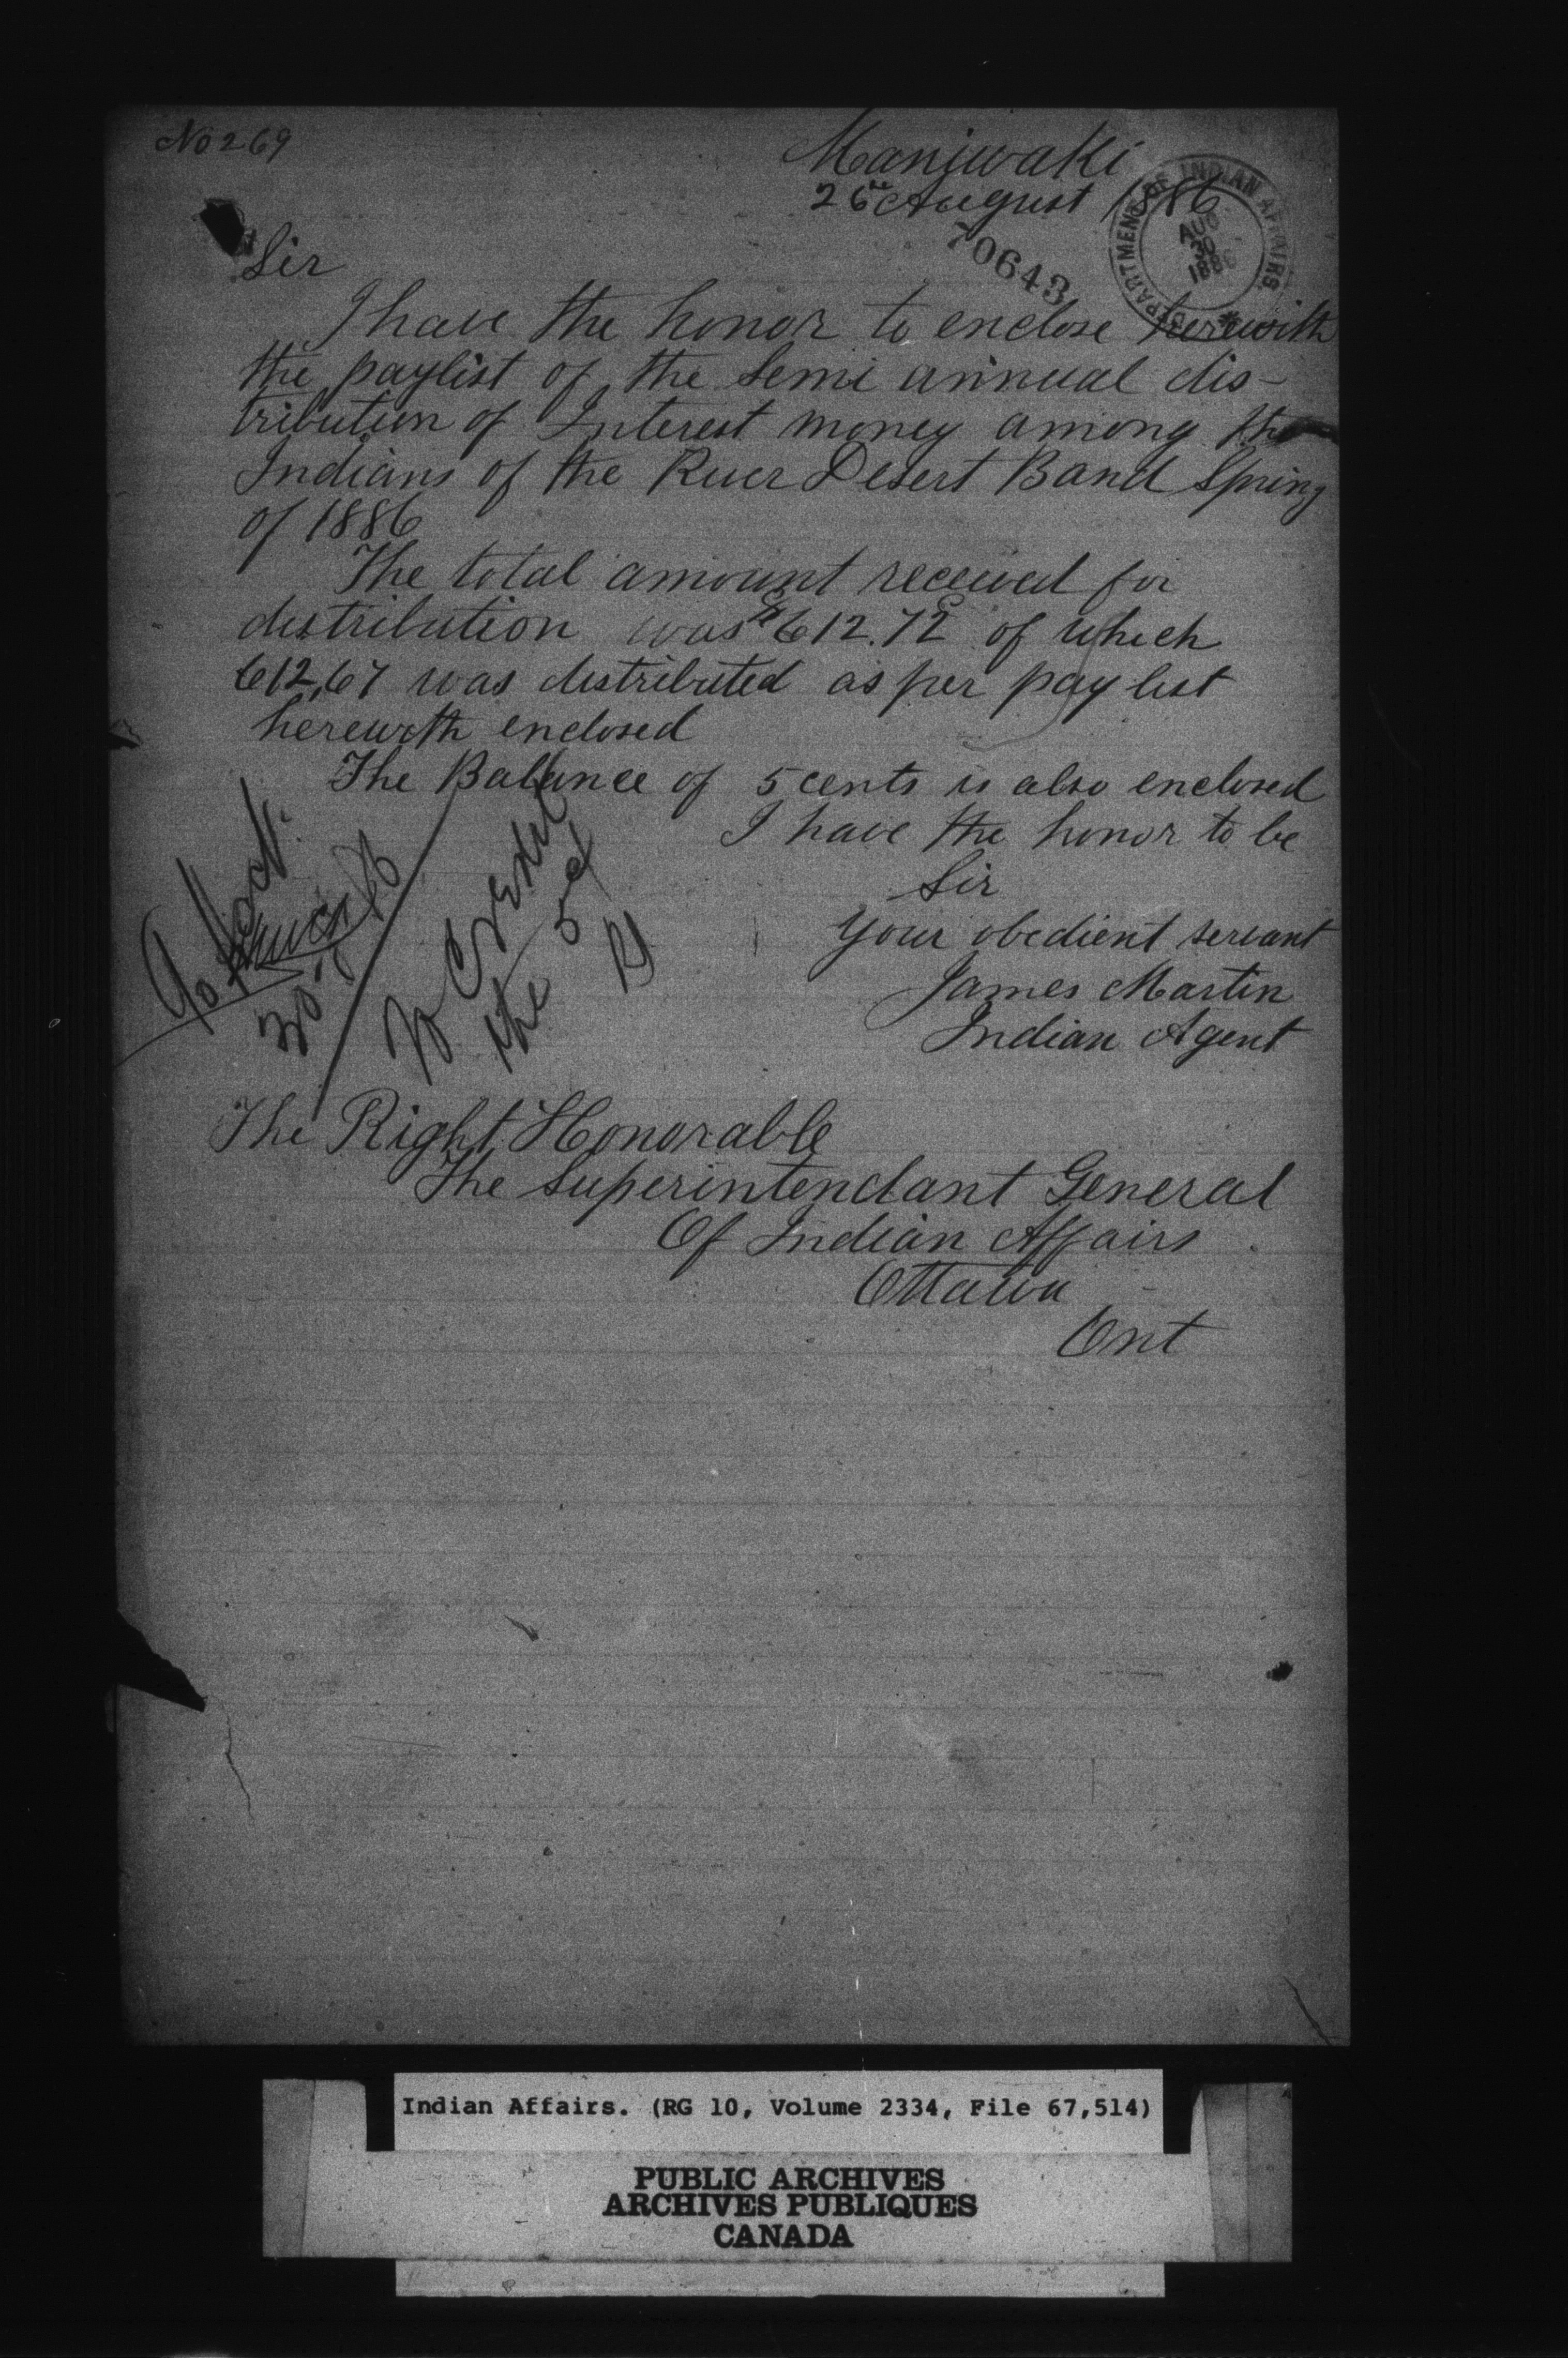 No 269
Maniwaki
26th August 1886
DEPARTMENT OF INDIAN AFFAIRS
AUG
30
1886
70643
Sir
I have the honor to enclose herewith
the paylist of the Semi annual dis-
tribution of Interest money among the
Indians of the River Desert Band Spring
of 1886
The total amount received for
distribution was $612.72c of which
612,67 was distributed as per pay list
herewith enclosed
The Balance of 5 cents is also enclosed
I have the honor to be
Sir
Your obedient servant
James Martin
Indian Agent
the 5c
The Right Honorable
The Superintendant General
Of Indian Affairs
Ottawa
Ont
Indian Affairs. (RG 10, Volume 2334, File 67,514)
PUBLIC ARCHIVES
ARCHIVES PUBLIQUES
CANADA